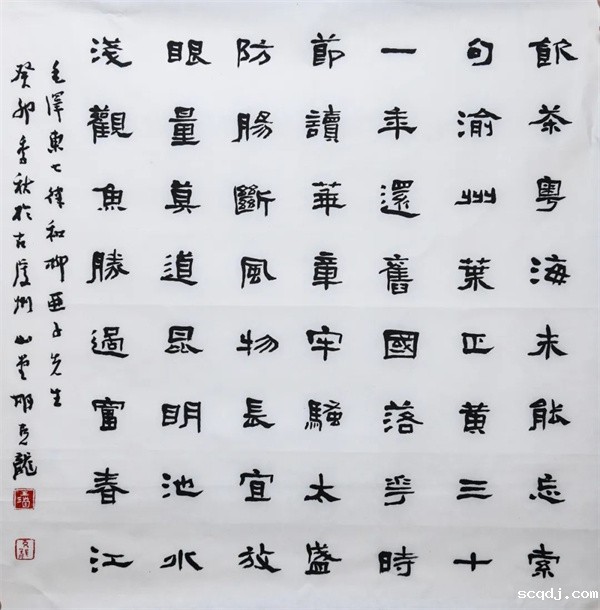 飲茶粤海未能忘索
句渝州葉正黄三十
一年還舊國落花時
節讀華章牢騷太盛
防腸斷風物長宜放
眼量莫道昆明池水
淺觀魚勝過富春江
毛澤東七律和柳亞子先生
癸卯季秋於古虔州山堂龍
www.scqdj.com